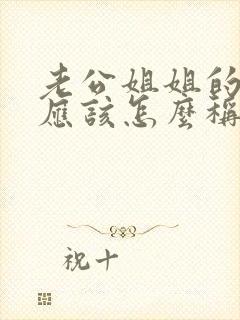 老公姐姐的
應該怎麼稱
祝十